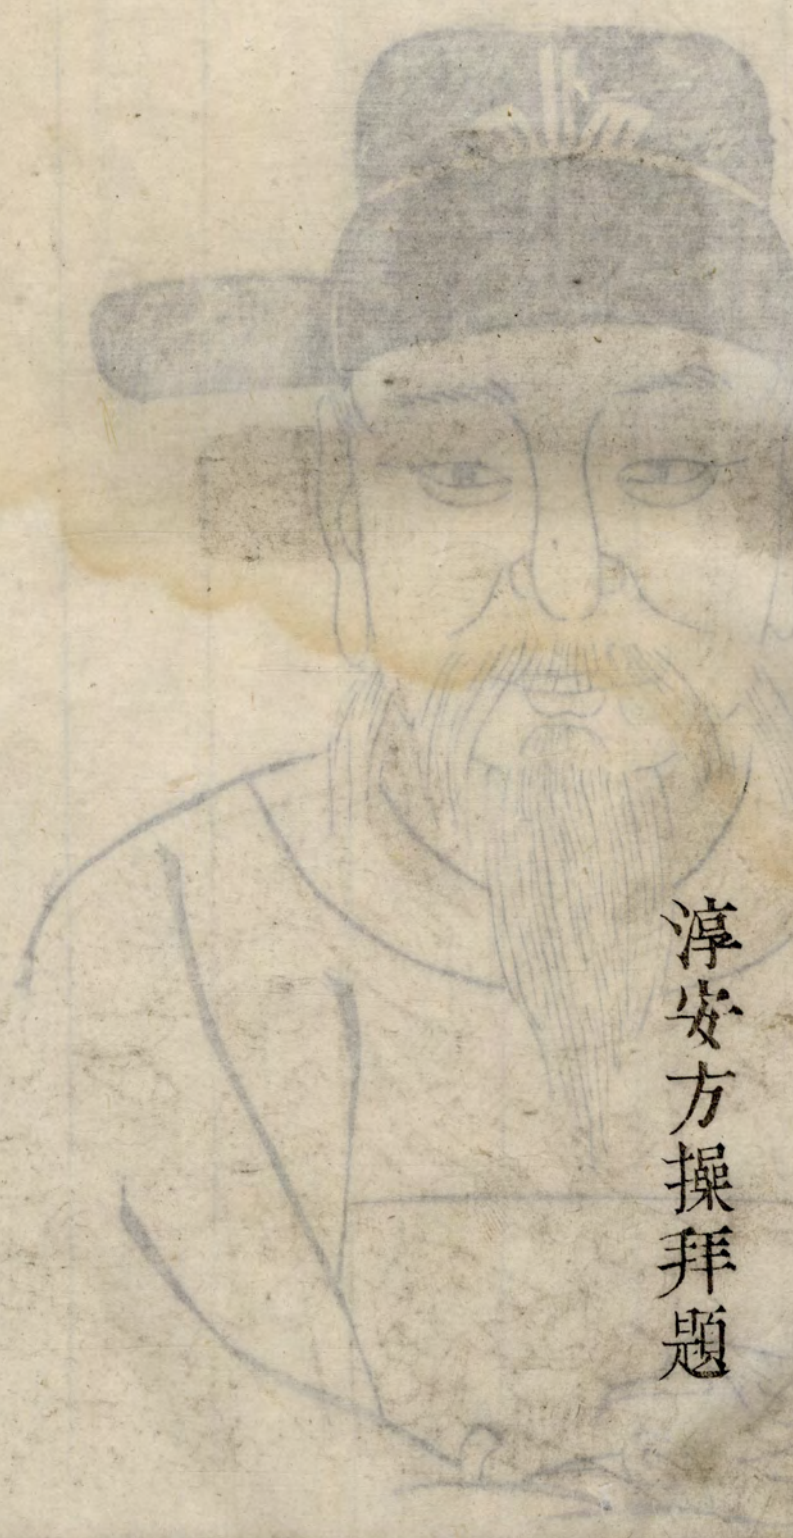 淳安方操拜題